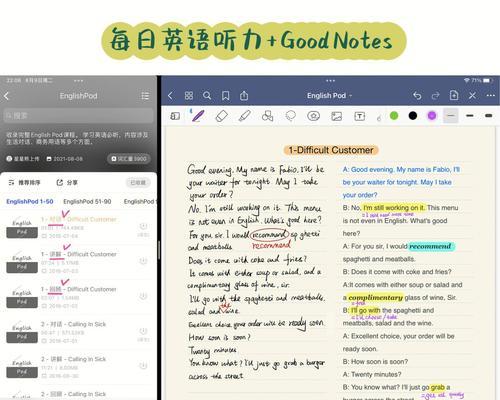 每日英语听力+GoodNotes
22:06 8月9日周二
71%
EnglishPod
搜索
收录完整English Pod课程。学习英语必听，内容涉及
生活对话、商务用语等多个方面。
2021-08-08
词汇量 5900
推荐排序
分享
已收藏
EnglishPod 1-50
EnglishPod 51-90
English Pod
1 - 对话 - Difficult Customer
2016-07-03
English Pod
1 - 讲解 - Difficult Customer
2016-07-04
English Pod
1 - 回顾 - Difficult Customer
2016-07-03
English Pod
2 - 对话 - Calling In Sick
English Pod
2 - 讲解 - Calling In Sick
English Pod
2 - 回顾 - Calling In Sick
English Pod
1-Difficult Customer
Good evening. My name is Fabio, I'll be
your waiter for tonight. May I take
your order?
No, I'm still working on it. This menu
is not even in English. What's good here?
For you sir, I would recommend spaghetti
and meatballs.
recommend
Does it come with coke and fries?
It comes with either soup or salad, and a
complimentary glass of wine, sir.
I'll go with the spaghetti and meatballs,
the
salad and wine.
Excellent choice, your order will be ready soon.
How soon is soon?
Twenty minutes
You know what? I'll just go grab a burger
across the street.
A: Good evening. My name is Fabio, I'll
be your waiter for tonight. May I take
your order?
B: No, I'm still working on it. This menu
is not even in English. What's good
here?
A: For you sir, I would recommend
spaghetti and meatballs.
B: Does it come with coke and fries?
A:It comes with either soup or salad, and
a complimentary glass of wine, Sir.
B: I'll go with the spaghetti and
meatballs, salad and the wine.
A: Excellent choice, your order will be
ready soon.
B: How soon is soon?
A: Twenty minutes?
B: You know what? I'll just go grab a
burger across the street.